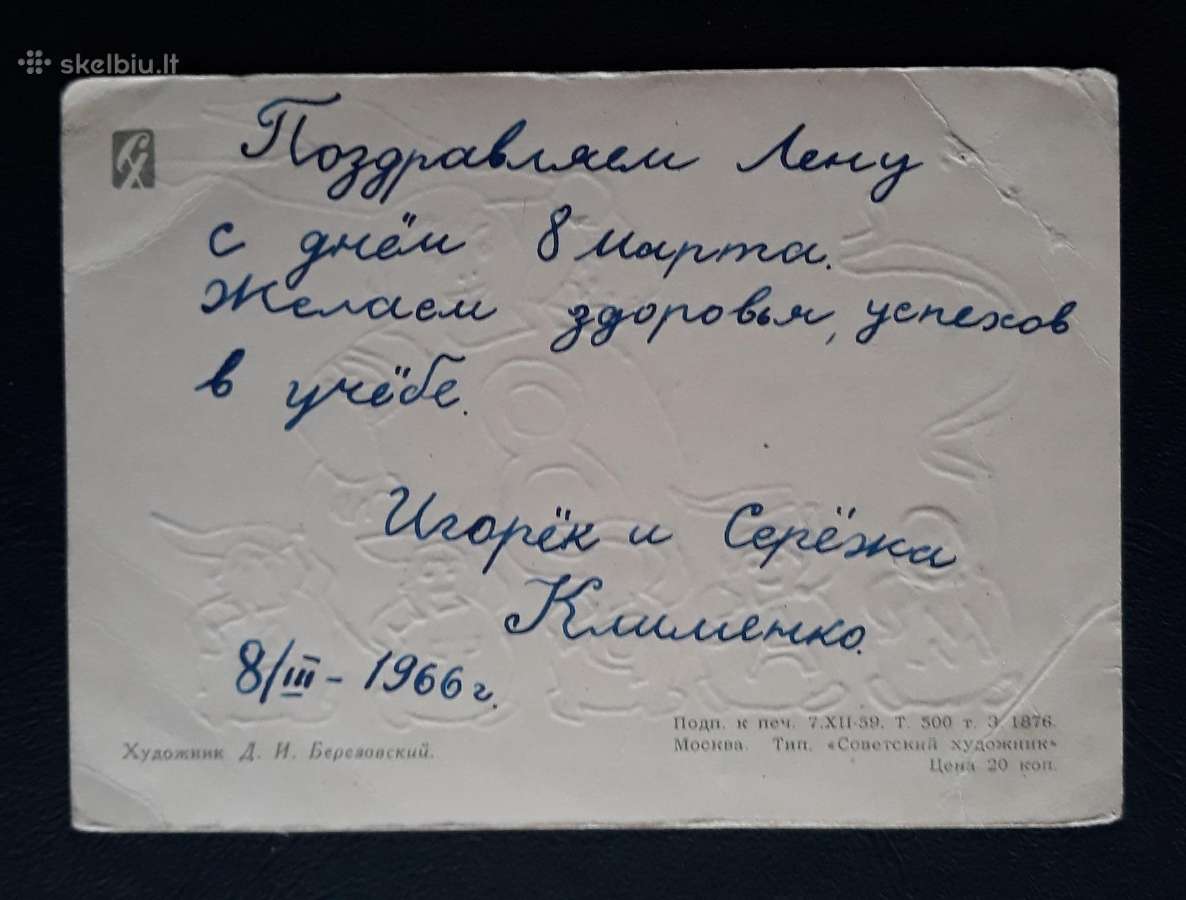 skelbiu.lt
СХ
Поздравляем Лену
с днём 8 марта.
Желаем здоровья, успехов
в учёбе.
Игорёк и Серёжа
Клименко.
8/III – 1966 г.
Подп. к печ. 7.XII-59. Т. 500 т. З. 1876.
Художник Д. И. Березовский.
Москва. Тип. «Советский художник»
Цена 20 коп.